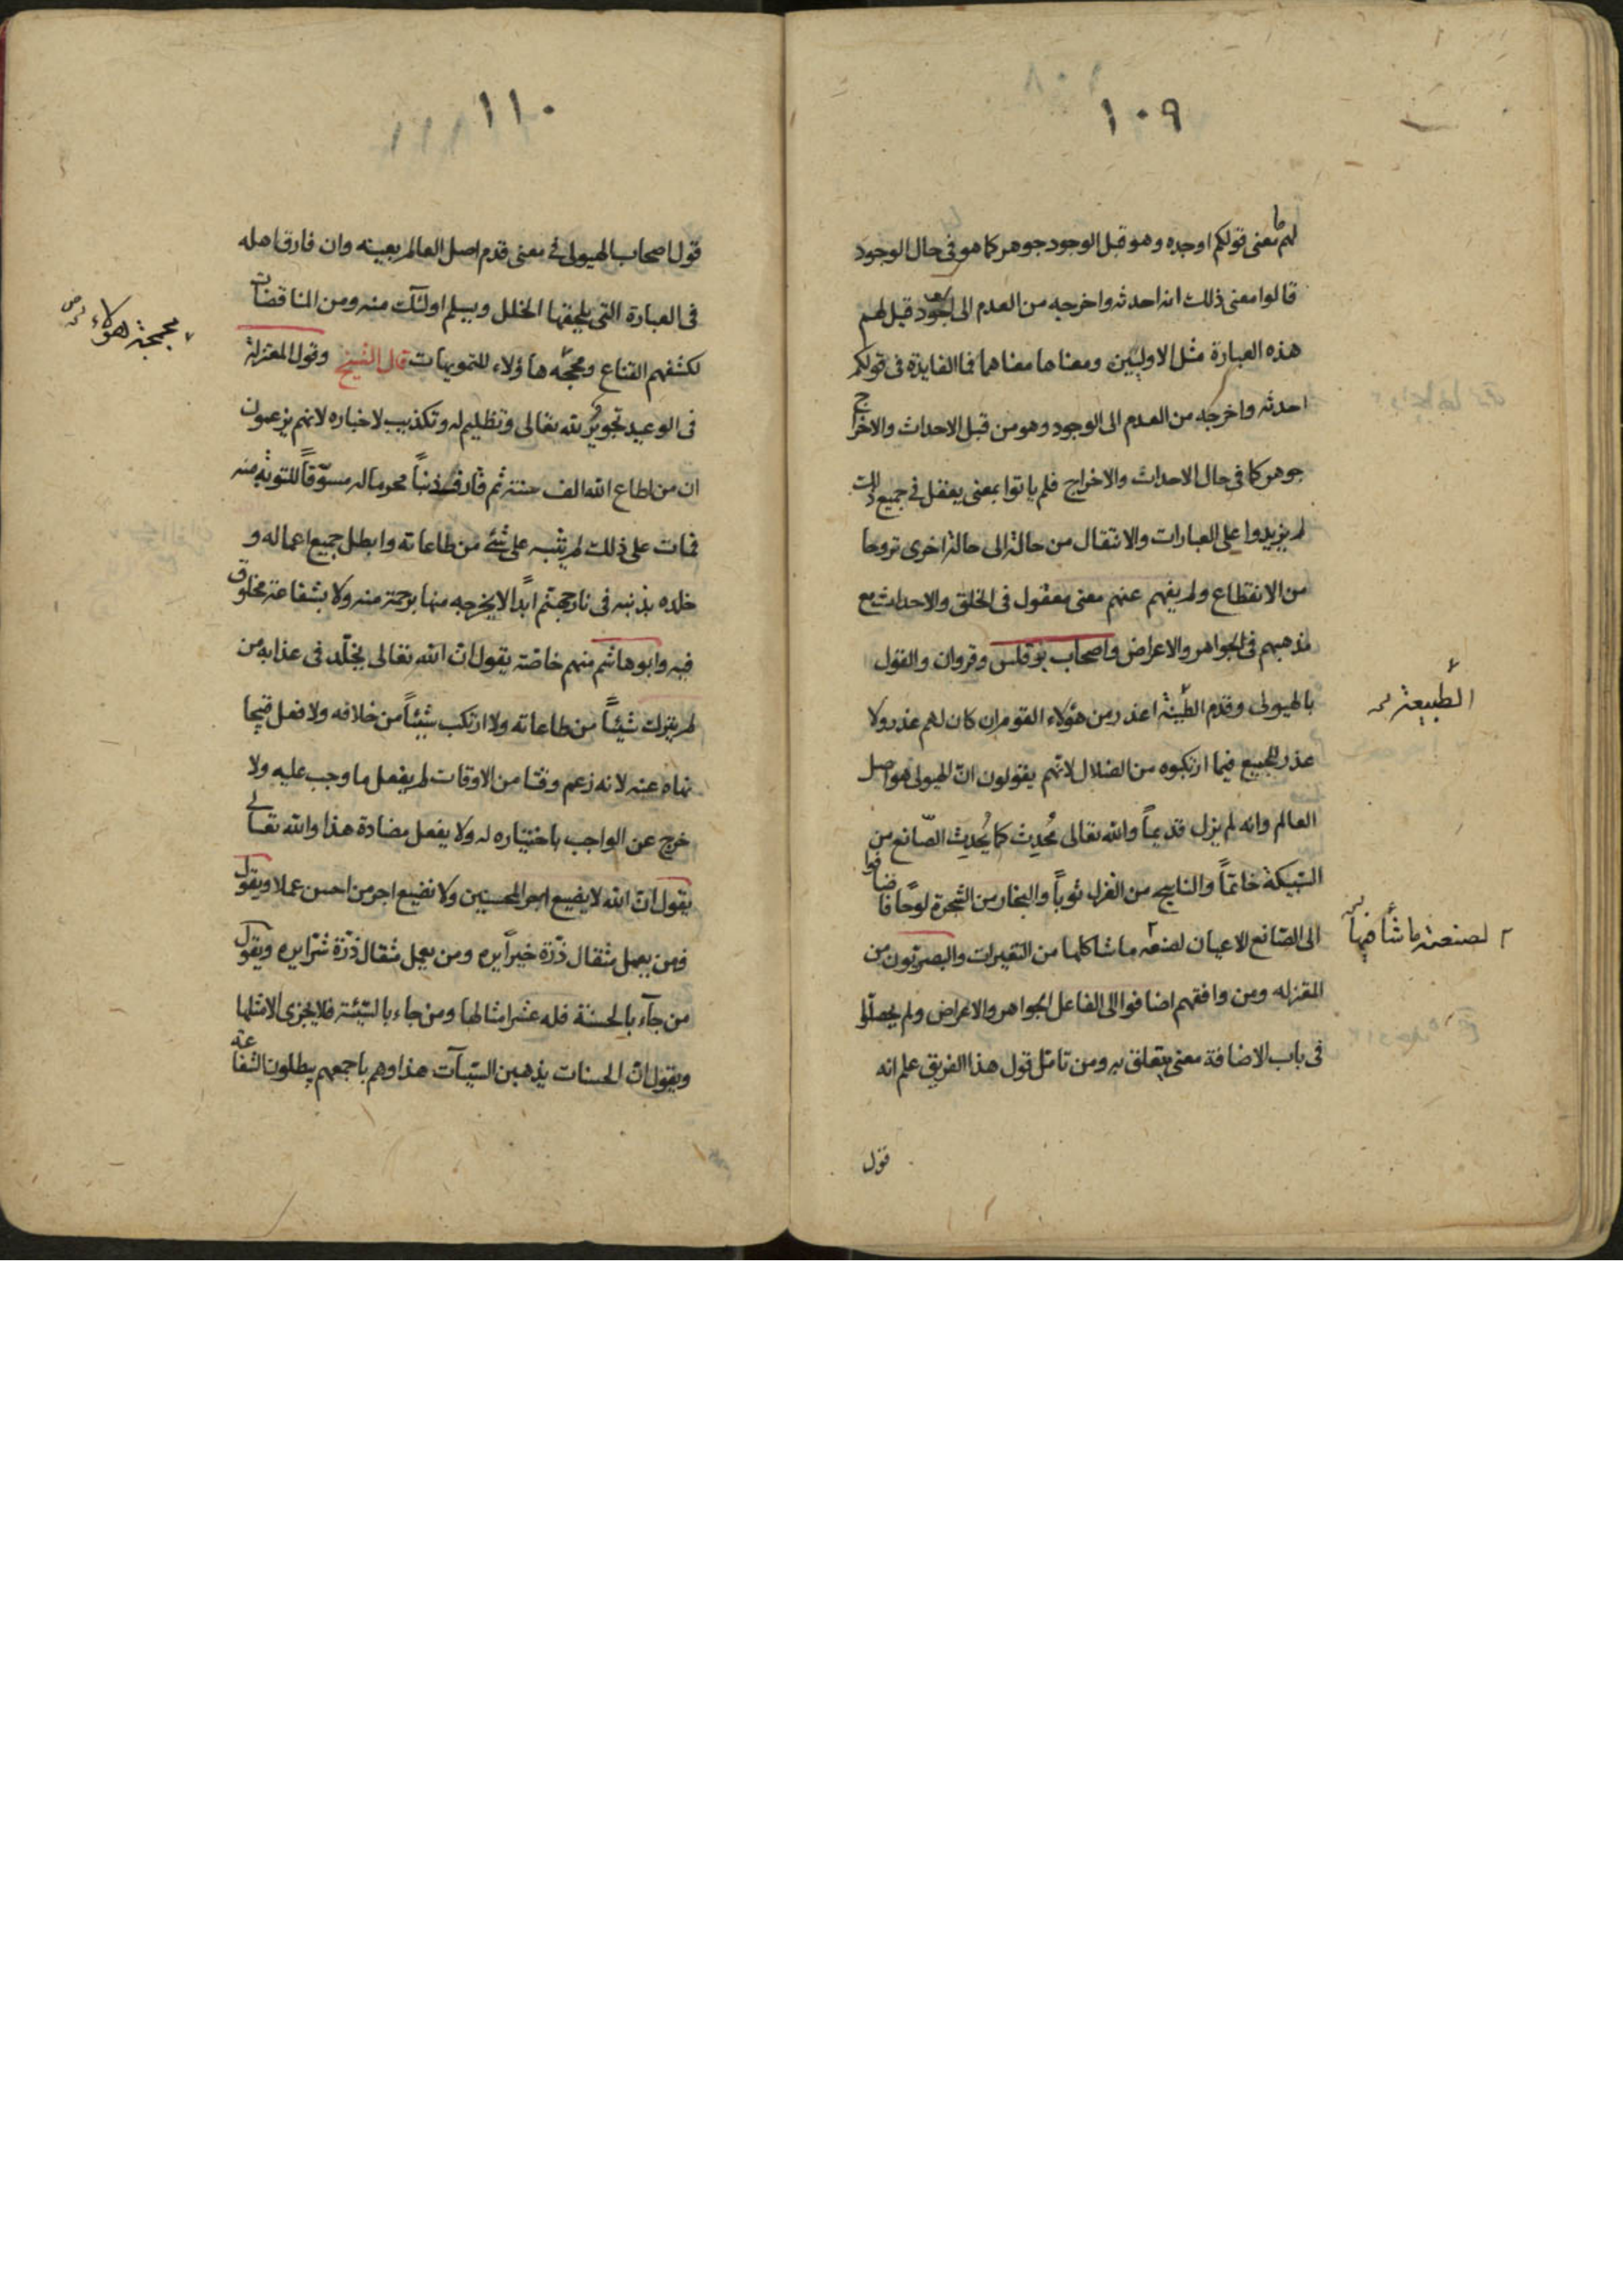 ١٠٩
لهم ما معنى قولكم اوجده وهو قبل الوجود جوهر كما هو فى حال الوجود
قالوا معنى ذلك انه احدثه واخرجه من العدم الى الوجود قيل لهم
هذه العبارة مثل الاوليين ومعناها معناهما فما الفايدة فى قولكم
احدثه واخرجه من العدم الى الوجود وهو من قبل الاحداث والاخراج
جوهر كما فى حال الاحداث والاخراج فلم ياتوا بمعنى يعقل فى جميع ذلك
لم يزيدوا على العبارات والانتقال من حالة الى حالة اخرى تروحا
من الانقطاع ولم يفهم عنهم معنى معقول فى الخلق والاحداث مع
مذهبهم فى الجواهر والاعراض واصحاب بوقلس وقروان والقول
بالهيولى وقدم الطينة اعذر من هؤلاء القوم ان كان لهم عذر ولا
الطبيعة
عذر للجميع فيما ارتكبوه من الضلال لانهم يقولون انّ الهيولى هو اصل
العالم وانه لم يزل قديماً والله تعالى مُحدِث كما يُحدِث الصّانع من
السّبيكة خاتماً والناسج من الغزل ثوباً والنجار من الشّجرة لوحًا فاضافوا
الى الصّانع الاعيان لصنعه ما شاكلها من التغيرات والبصريّون من
لصنعته ما شأ فيها
المعتزله ومن وافقهم اضافوا الى الفاعل الجواهر والاعراض ولم يحصلّوا
فى باب الاضافة معنى يتعلق به ومن تامّل قول هذا الفريق علم انه
قول
١١٠
قول اصحاب الهيولى فى معنى قدم اصل العالم بعينه وان فارق اهله
فى العبارة التى يلحقها الخلل ويسلم اولئك منه ومن المناقضات
لكشفهم القناع ومحجّه هاؤلاء للتمويهات قال الشيخ وقول المعتزلة
مجمجة هؤلاء
فى الوعيد تجويرٌ لله تعالى وتظليم له وتكذيب لاخباره لانهم يزعمون
ان من اطاع الله الف سنة ثم قارف ذنباً محرما له مسوّفاً للتوبة منه
فمات على ذلك لم يثبه على شئ من طاعاته وابطل جميع اعماله و
خلده بذنبه فى نار جهنّم ابداً لا يخرجه منها برحمة منه ولا بشفاعة مخلوق
فيه وابو هاشم منهم خاصّة يقول انّ الله تعالى يخلّد فى عذابه من
لم يترك شيئاً من طاعاته ولا ارتكب شيئاً من خلافه ولا فعل قبيحا
نهاه عنه لانه زعم وقتا من الاوقات لم يفعل ما وجب عليه ولا
خرج عن الواجب باختياره له ولا يفعل مضادة هذا والله تعالى
يقول انّ الله لا يضيع اجر المحسنين ولا نضيع اجر من احسن عملا ويقول
فمن يعمل مثقال ذرّة خيراً يره ومن يعمل مثقال ذرّة شرّا يره ويقول
من جآء بالحسنة فله عشر امثالها ومن جاء بالسّيّئة فلا يجزى الا مثلها
ويقول انّ الحسنات يذهبن السّيّآت هذا وهم باجمعهم يبطلون الشفاعة